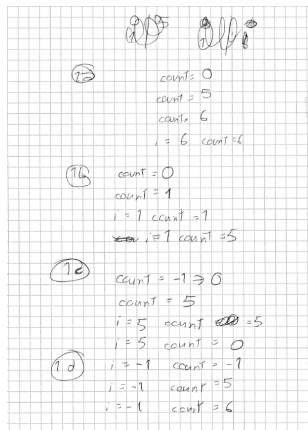 1a
count = 0
count = 5
count = 6
i = 6 count = 6
1b
count = 0
count = 1
i = 1 count = 1
i = 1 count = 5
1c
count = -1 → 0
count = 5
i = 5 count = 5
i = 5 count = 0
1d i = -1 count = -1
i = -1 count = 5
i = -1 count = 6